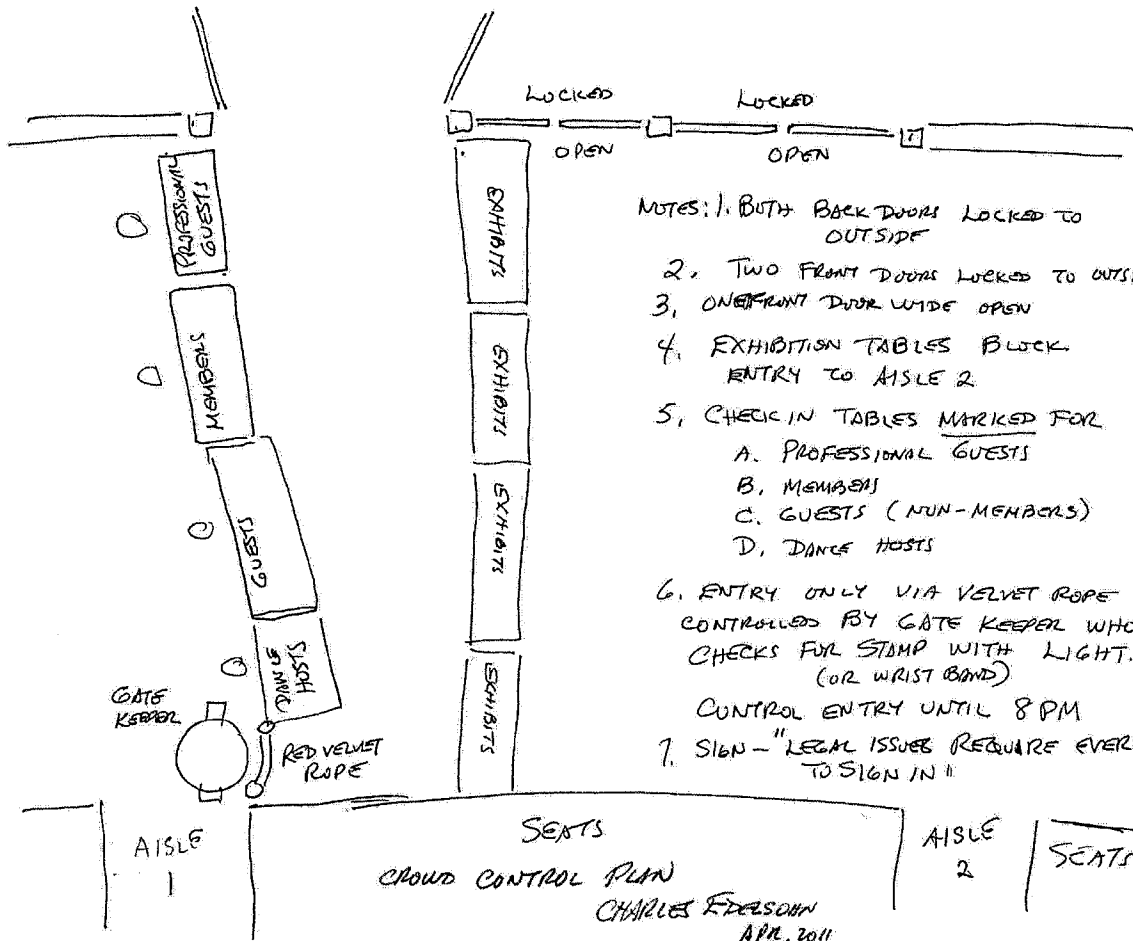 LOCKED
LOCKED
OPEN
OPEN
PROFESSIONAL
GUESTS
MEMBERS
GUESTS
DANCE
HOSTS
EXHIBITS
EXHIBITS
EXHIBITS
EXHIBITS
GATE
KEEPER
RED VELVET
ROPE
NOTES: 1. BOTH BACK DOORS LOCKED TO
OUTSIDE
2. TWO FRONT DOORS LOCKED TO OUTS
3, ONE FRONT DOOR WIDE OPEN
4. EXHIBITION TABLES BLOCK
ENTRY TO AISLE 2
5, CHECK IN TABLES MARKED FOR
A. PROFESSIONAL GUESTS
B. MEMBERS
C. GUESTS (NON-MEMBERS)
D. DANCE HOSTS
6. ENTRY ONLY VIA VELVET ROPE
CONTROLLED BY GATE KEEPER WHO
CHECKS FOR STAMP WITH LIGHT.
(OR WRIST BAND)
CONTROL ENTRY UNTIL 8 PM
7. SIGN - "LEGAL ISSUES REQUIRE EVER
TO SIGN IN"
AISLE
1
SEATS
AISLE
2
SEATS
CROWD CONTROL PLAN
CHARLES
APR. 2011